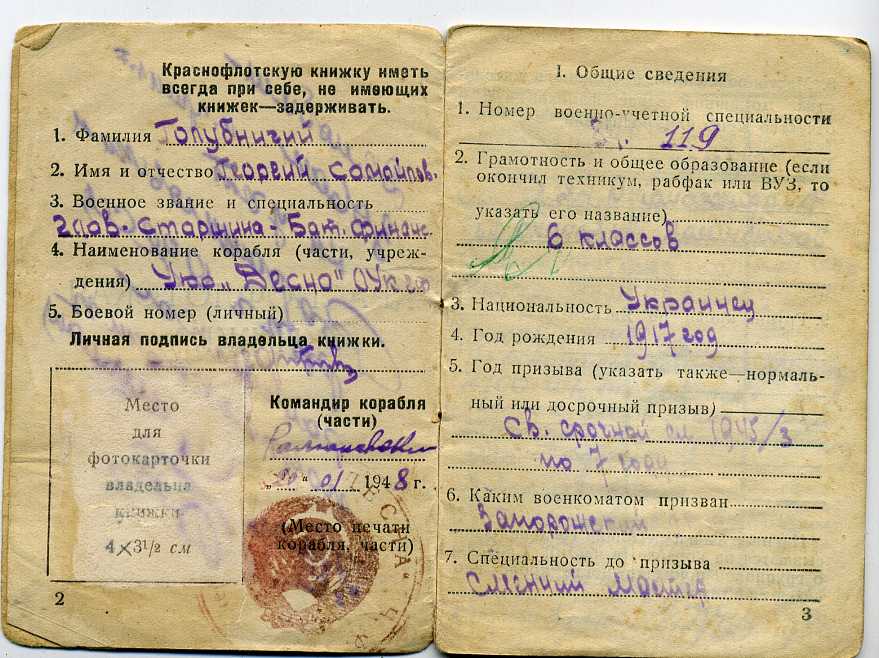 Краснофлотскую книжку иметь
всегда при себе, не имеющих
книжек—задерживать.
1. Фамилия Голубничий
2. Имя и отчество Георгий Самойлов.
3. Военное звание и специальность
Глав. Старшина - Бат. финанс
4. Наименование корабля (части, учреж-
дения) "Десна"
5. Боевой номер (личный)
Личная подпись владельца книжки.
Место
для
фотокарточки
владельца
книжки
4×3½ см
Командир корабля
(части)
"20" 01 1948 г.
(Место печати
корабля, части)
2
I. Общие сведения
1. Номер военно-учетной специальности
119
2. Грамотность и общее образование (если
окончил техникум, рабфак или ВУЗ, то
указать его название)
6 классов
3. Национальность Украинец
4. Год рождения 1917 год
5. Год призыва (указать также—нормаль-
ный или досрочный призыв)
Св. срочной сл. 1945/3
по 7 года
6. Каким военкоматом призван
Запорожский
7. Специальность до призыва
Сменний Мастер
3